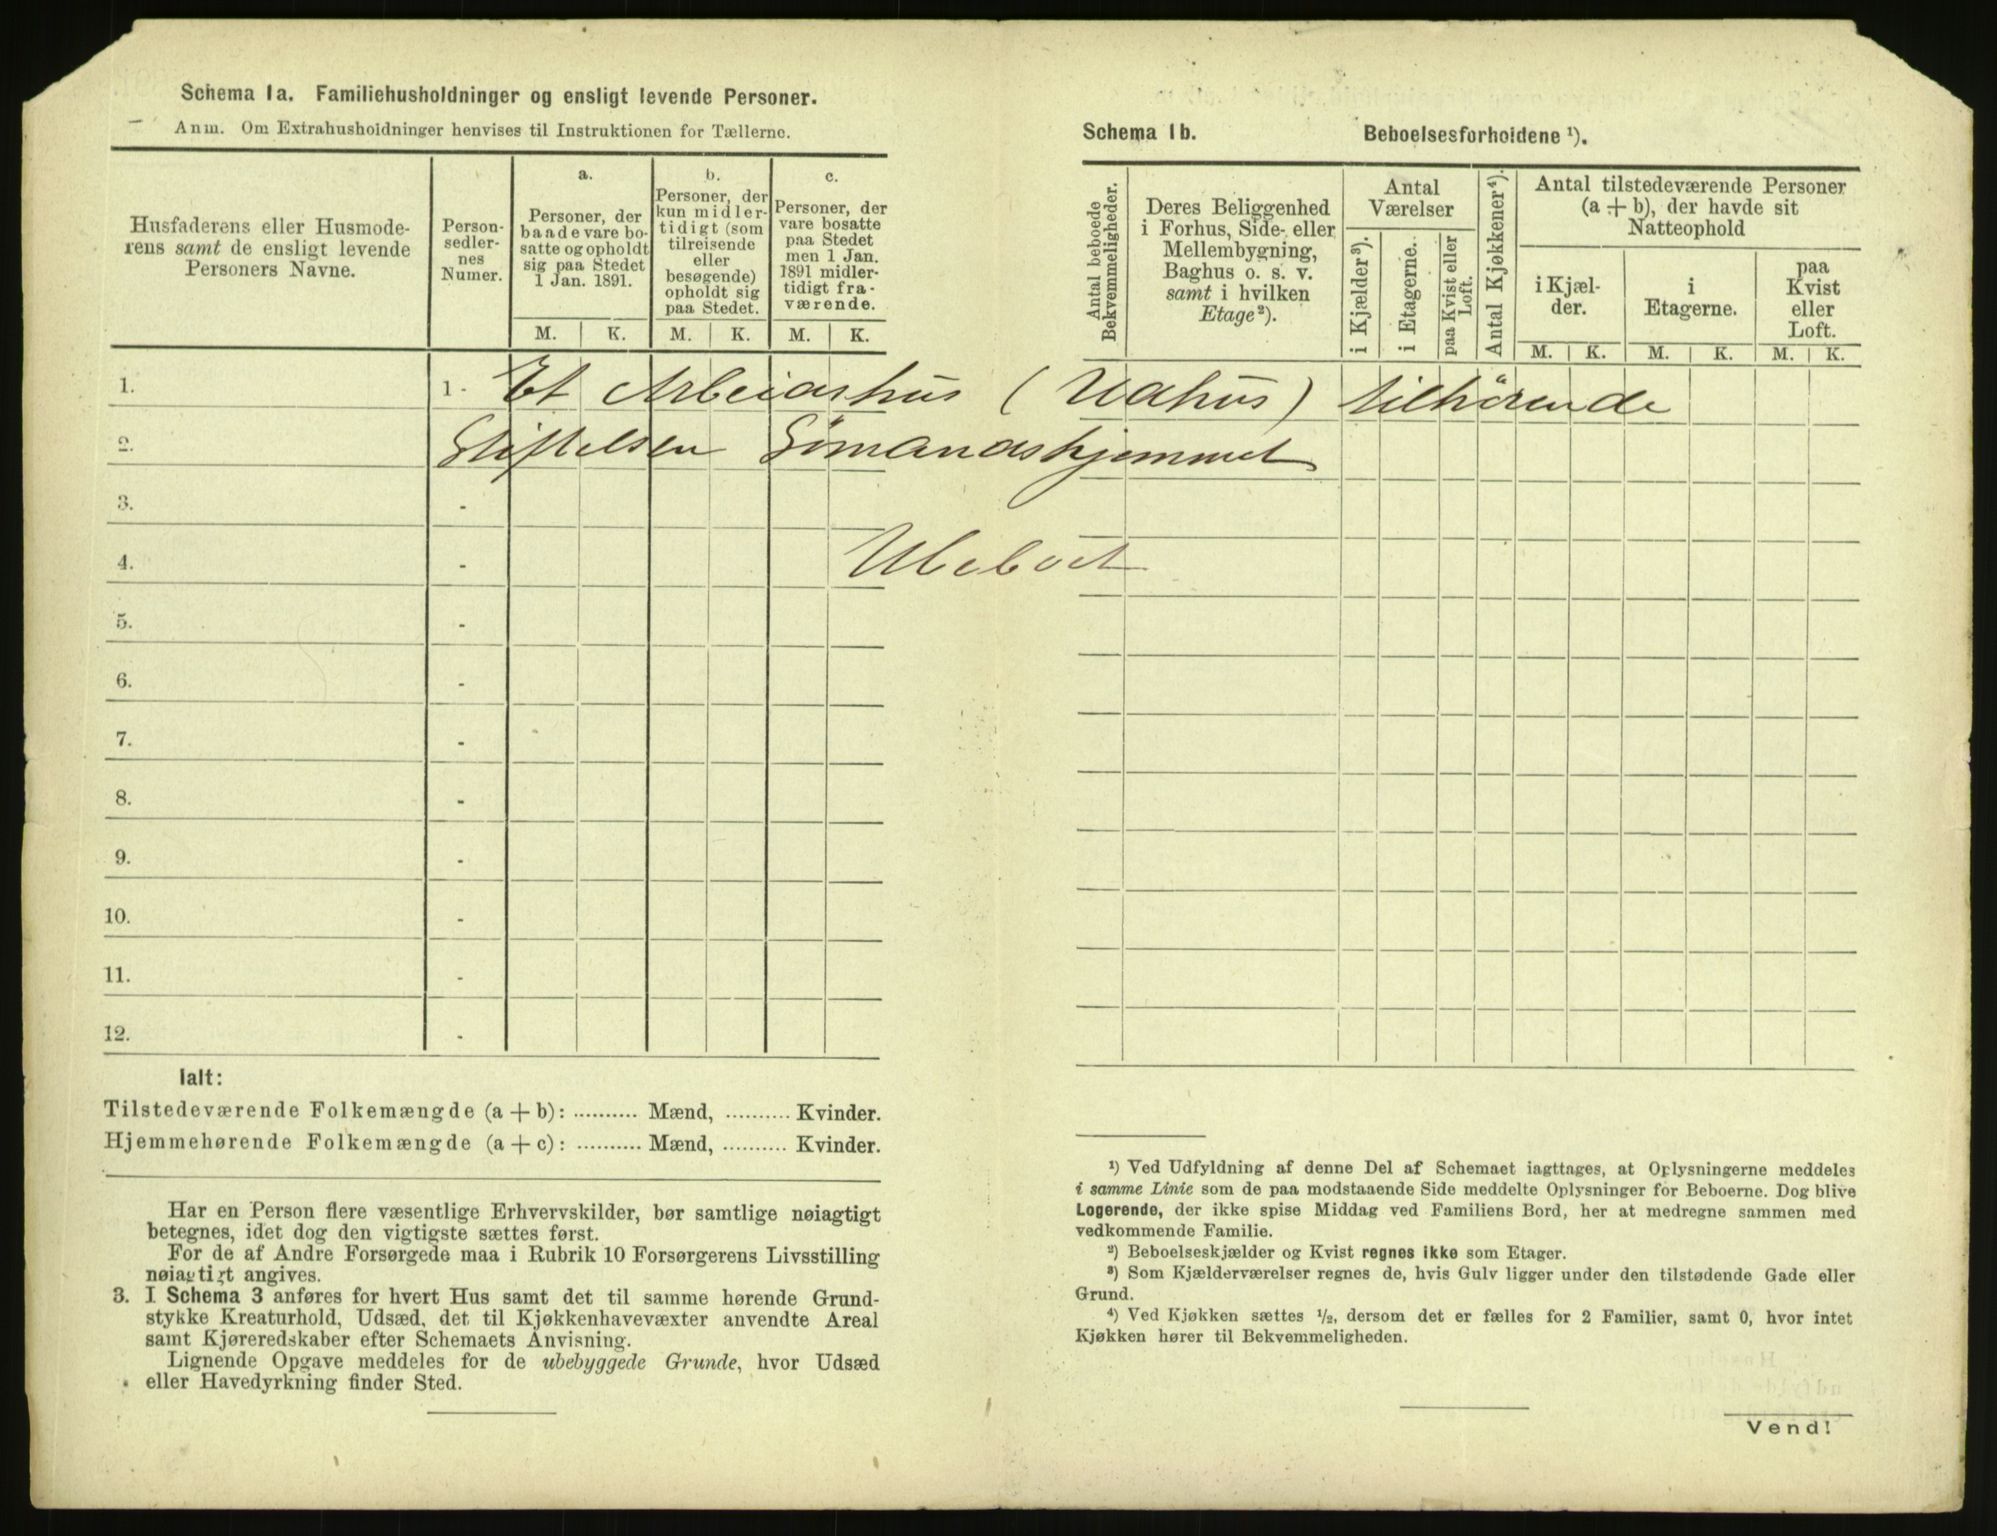 Schema 1a. Familiehusholdninger og ensligt levende Personer.
Anm. Om Extrahusholdninger henvises til Instruktionen for Tællerne.
Husfaderens eller Husmode-
rens samt de ensligt levende
Personers Navne.
Person-
sedler-
nes
Numer.
a.
Personer, der
baade vare bo-
satte og opholdt
sig paa Stedet
1 Jan. 1891.
b.
Personer, der
kun midler-
tidigt (som
tilreisende
eller
besøgende)
opholdt sig
paa Stedet.
c.
Personer, der
vare bosatte
paa Stedet
men 1 Jan.
1891 midler-
tidigt fra-
værende.
M. K. M. K. M. K.
1. 1- Et Arbeidshus (Vedhus) tilhörende
2. Stiftelsen Sømandshjemmet
3. -
4. - Ubeboet
5. -
6. -
7. -
8. -
9. -
10. -
11. -
12. -
Ialt:
Tilstedeværende Folkemængde (a + b): .......... Mænd, .......... Kvinder.
Hjemmehørende Folkemængde (a + c): .......... Mænd, .......... Kvinder.
Har en Person flere væsentlige Erhvervskilder, bør samtlige nøiagtigt
betegnes, idet dog den vigtigste sættes først.
For de af Andre Forsørgede maa i Rubrik 10 Forsørgerens Livsstilling
nøiagtigt angives.
3. I Schema 3 anføres for hvert Hus samt det til samme hørende Grund-
stykke Kreaturhold, Udsæd, det til Kjøkkenhavevæxter anvendte Areal
samt Kjøreredskaber efter Schemaets Anvisning.
Lignende Opgave meddeles for de ubebyggede Grunde, hvor Udsæd
eller Havedyrkning finder Sted.
Schema 1b. Beboelsesforholdene ¹).
Antal beboede
Bekvemmeligheder.
Deres Beliggenhed
i Forhus, Side- eller
Mellembygning,
Baghus o. s. v.
samt i hvilken
Etage²).
Antal
Værelser
i Kjælder³).
i Etagerne.
paa Kvist eller
Loft.
Antal Kjøkkener⁴).
Antal tilstedeværende Personer
(a + b), der havde sit
Natteophold
i Kjæl-
der.
i
Etagerne.
paa
Kvist
eller
Loft.
M. K. M. K. M. K.
¹) Ved Udfyldning af denne Del af Schemaet iagttages, at Oplysningerne meddeles
i samme Linie som de paa modstaaende Side meddelte Oplysninger for Beboerne. Dog blive
Logerende, der ikke spise Middag ved Familiens Bord, her at medregne sammen med
vedkommende Familie.
²) Beboelseskjælder og Kvist regnes ikke som Etager.
³) Som Kjælderværelser regnes de, hvis Gulv ligger under den tilstødende Gade eller
Grund.
⁴) Ved Kjøkken sættes ½, dersom det er fælles for 2 Familier, samt 0, hvor intet
Kjøkken hører til Bekvemmeligheden.
Vend!